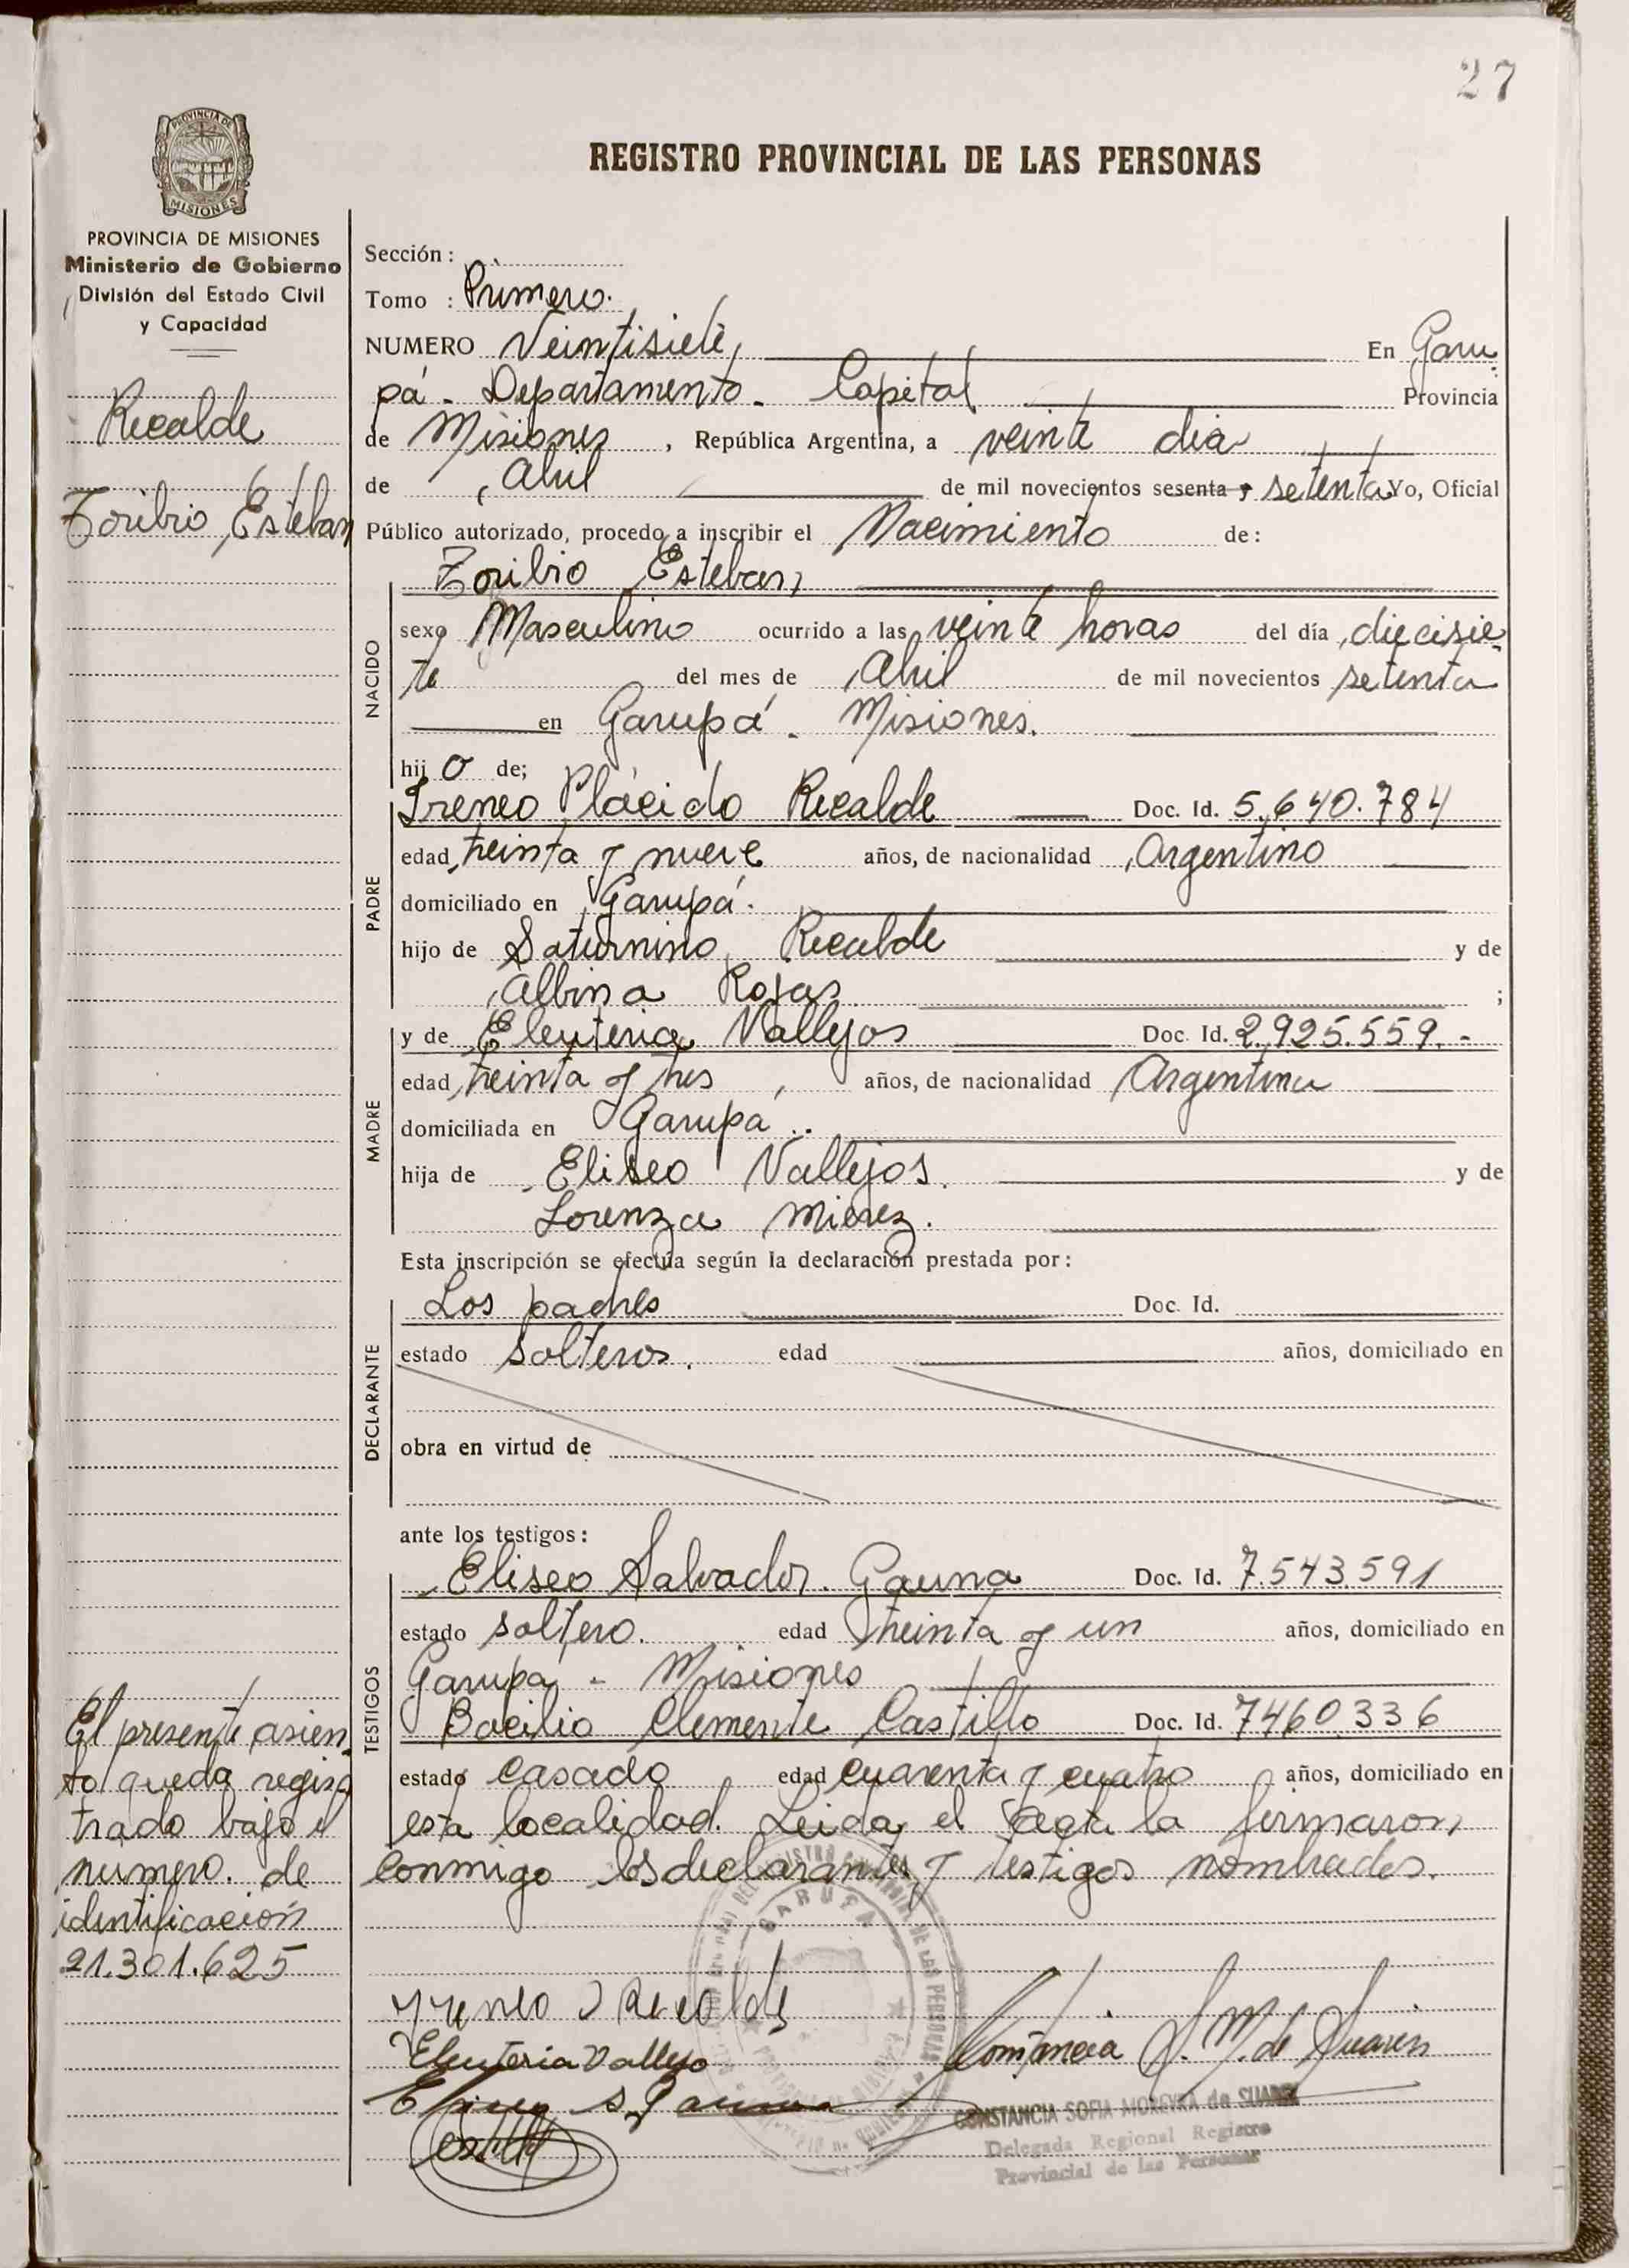 27
PROVINCIA DE
MISIONES
REGISTRO PROVINCIAL DE LAS PERSONAS
PROVINCIA DE MISIONES
Ministerio de Gobierno
División del Estado Civil
y Capacidad
Recalde
Toribio Esteban
Sección :
Tomo : Primero.
NUMERO Veintisiete, En Garu
pá - Departamento - Capital Provincia
de Misiones , República Argentina, a veinte dia
de Abril de mil novecientos sesenta y setenta Yo, Oficial
Público autorizado, procedo a inscribir el Nacimiento de:
NACIDO
Toribio Esteban,
sexo Masculino ocurrido a las veinte horas del día diecisie-
te del mes de Abril de mil novecientos setenta
en Garupá - Misiones.
hij o de;
PADRE
Ireneo Plácido Recalde Doc. Id. 5.640.784
edad treinta y nueve años, de nacionalidad Argentino
domiciliado en Garupá.
hijo de Saturnino Recalde y de
Albina Rojas ;
MADRE
y de Eleuteria Vallejos Doc. Id. 2.925.559.-
edad treinta y tres años, de nacionalidad Argentina
domiciliada en Garupá
hija de Eliseo Vallejos. y de
Lorenza Mierez.
Esta inscripción se efectúa según la declaración prestada por :
DECLARANTE
Los padres Doc. Id.
estado solteros. edad años, domiciliado en
obra en virtud de
ante los testigos :
TESTIGOS
Eliseo Salvador. Gauna Doc. Id. 7.543.591
estado soltero. edad treinta y un años, domiciliado en
Garupá - Misiones
Bacilio Clemente Castillo Doc. Id. 7460.336
estado casado edad cuarenta y cuatro años, domiciliado en
esta localidad. Leida el acta la firmaron,
conmigo los declarantes y testigos nombrados.
El presente asien
to queda regis
trado bajo el
número. de
identificación
21.301.625
GARUPA
DE LAS PERSONAS
Yreneo Recalde
Eleuteria Vallejo
S. Gauna
Castillo
Constancia S. M. de Suarez
CONSTANCIA SOFIA MOREYRA de SUAREZ
Delegada Regional Registro
Provincial de las Personas